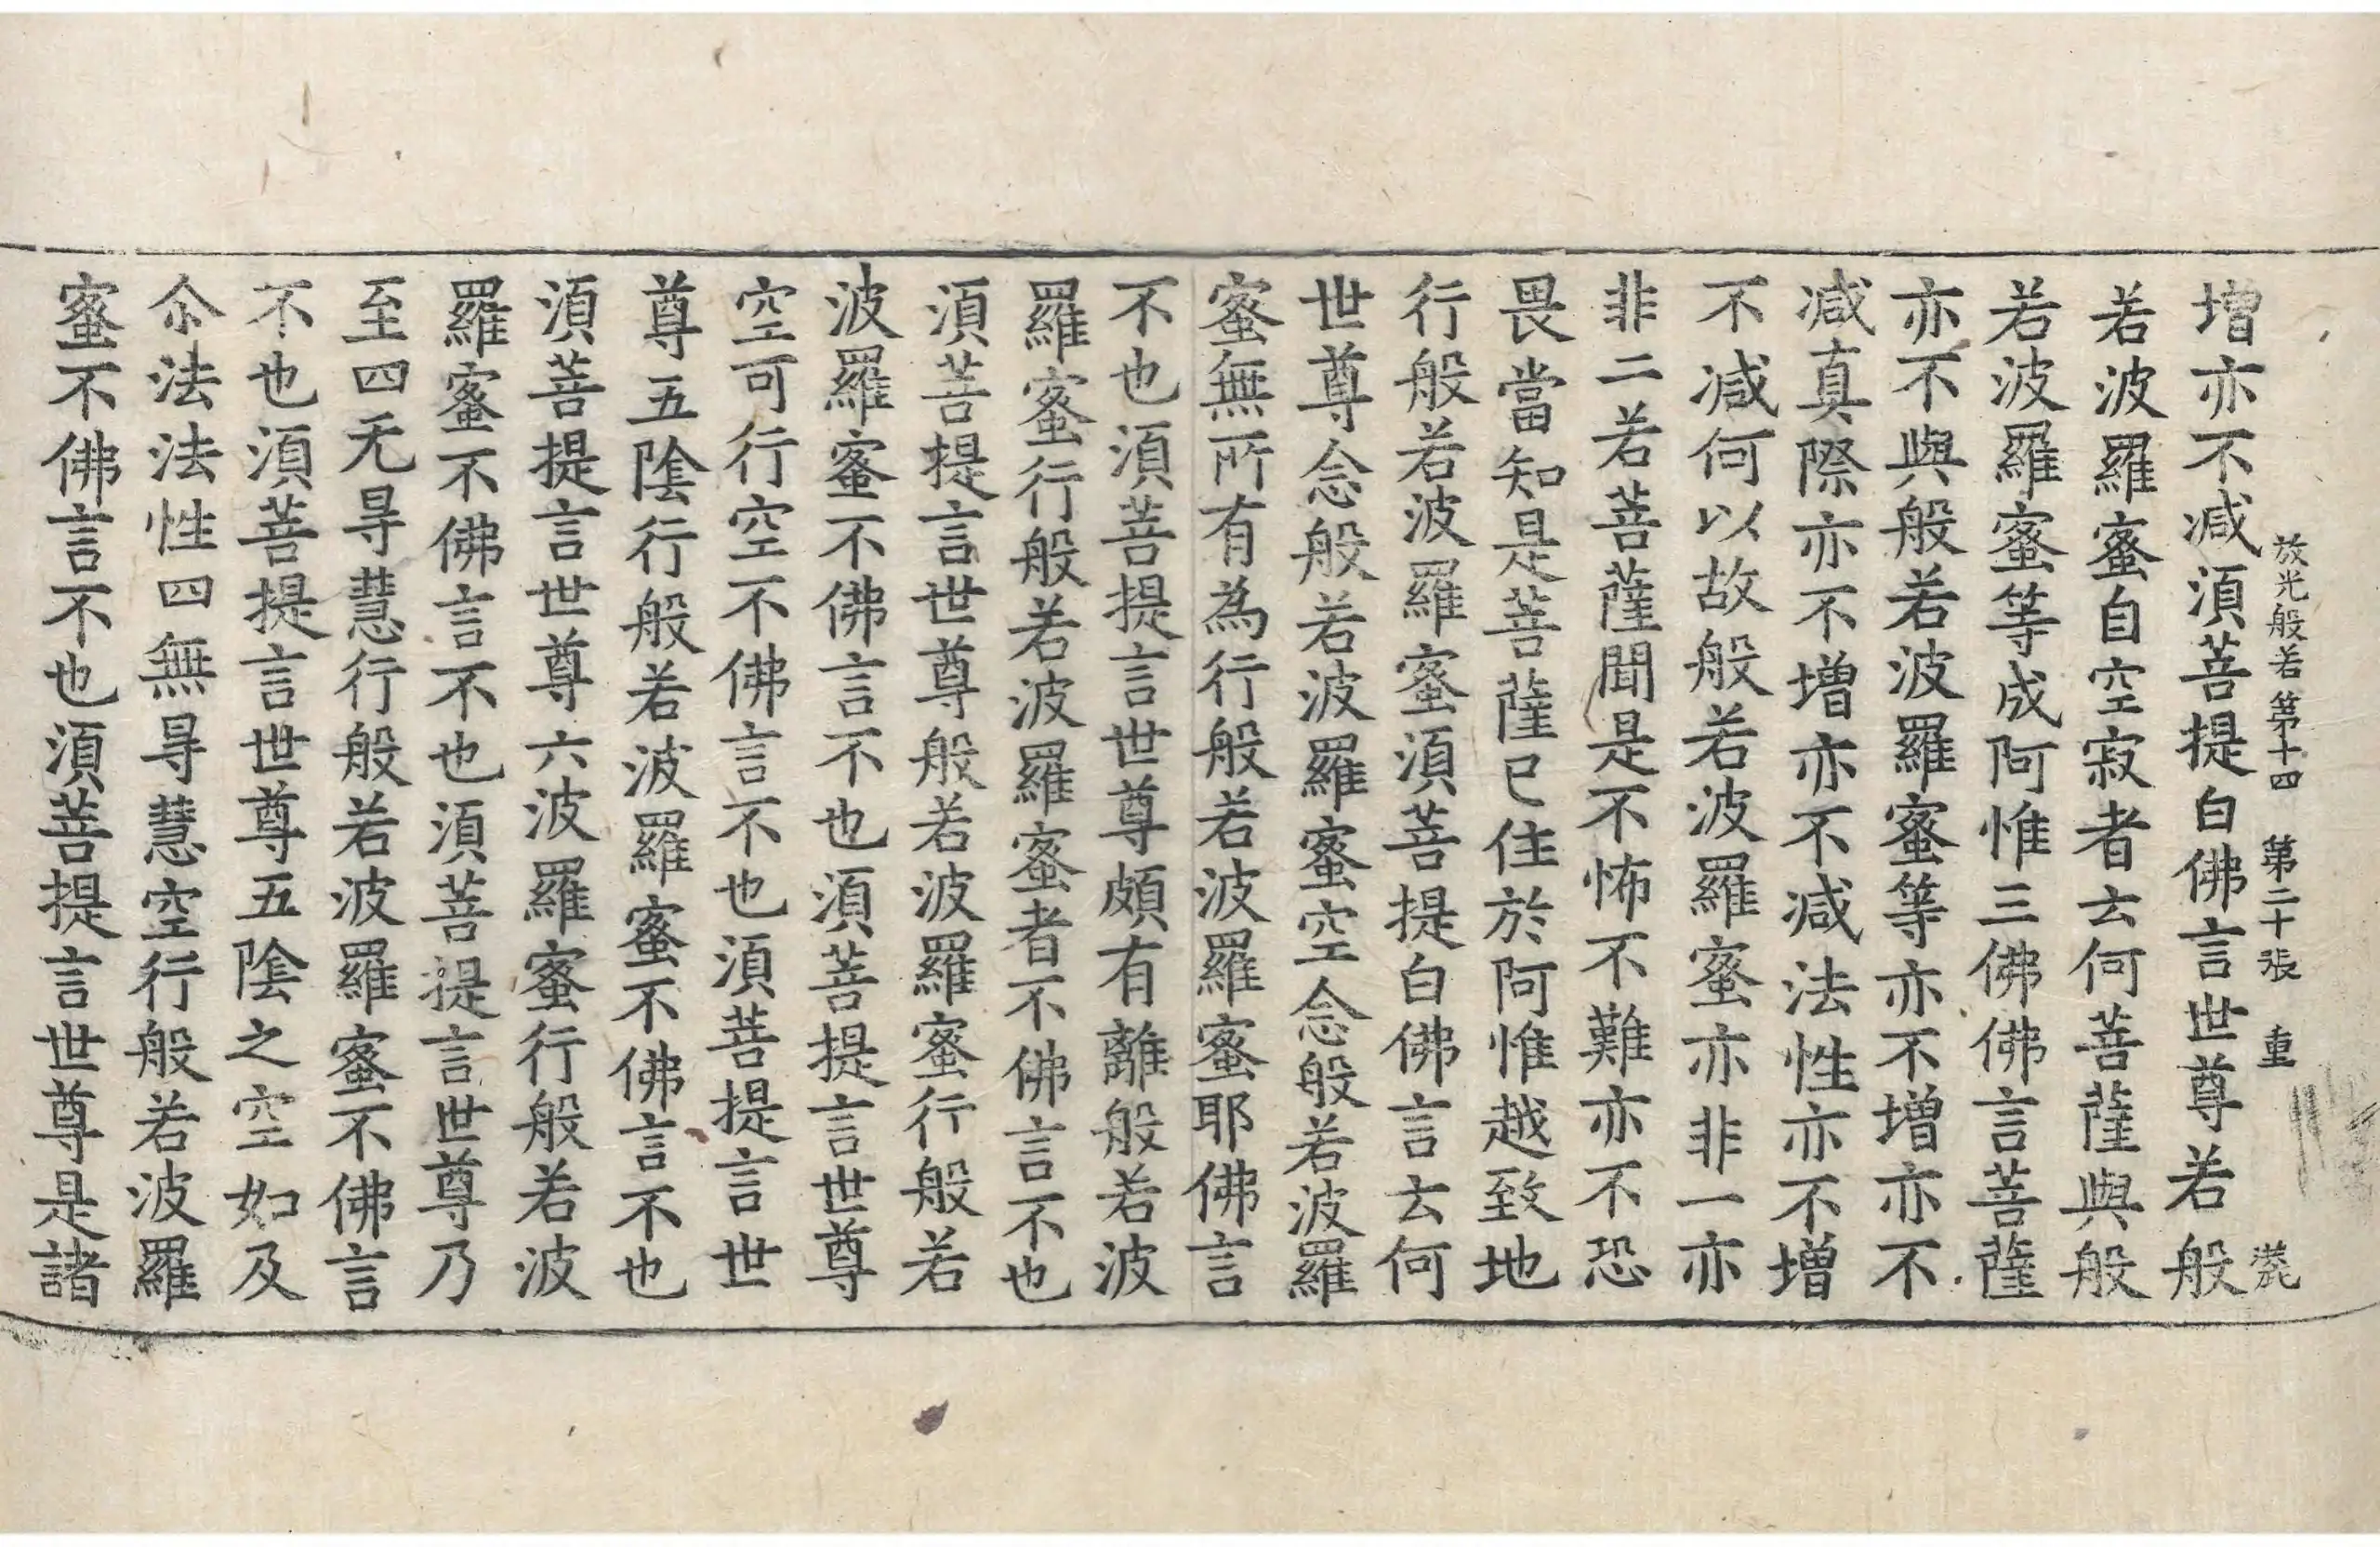 放光般若第十四 第二十張 重
增亦不減須菩提白佛言世尊若般
若波羅蜜自空寂者云何菩薩與般
若波羅蜜等成阿惟三佛佛言菩薩
亦不與般若波羅蜜等亦不增亦不
減真際亦不增亦不減法性亦不增
不減何以故般若波羅蜜亦非一亦
非二若菩薩聞是不怖不難亦不恐
畏當知是菩薩已住於阿惟越致地
行般若波羅蜜須菩提白佛言云何
世尊念般若波羅蜜空念般若波羅
蜜無所有為行般若波羅蜜耶佛言
不也須菩提言世尊頗有離般若波
羅蜜行般若波羅蜜者不佛言不也
須菩提言世尊般若波羅蜜行般若
波羅蜜不佛言不也須菩提言世尊
空可行空不佛言不也須菩提言世
尊五陰行般若波羅蜜不佛言不也
須菩提言世尊六波羅蜜行般若波
羅蜜不佛言不也須菩提言世尊乃
至四无㝵慧行般若波羅蜜不佛言
不也須菩提言世尊五陰之空如及
尒法法性四無㝵慧空行般若波羅
蜜不佛言不也須菩提言世尊是諸